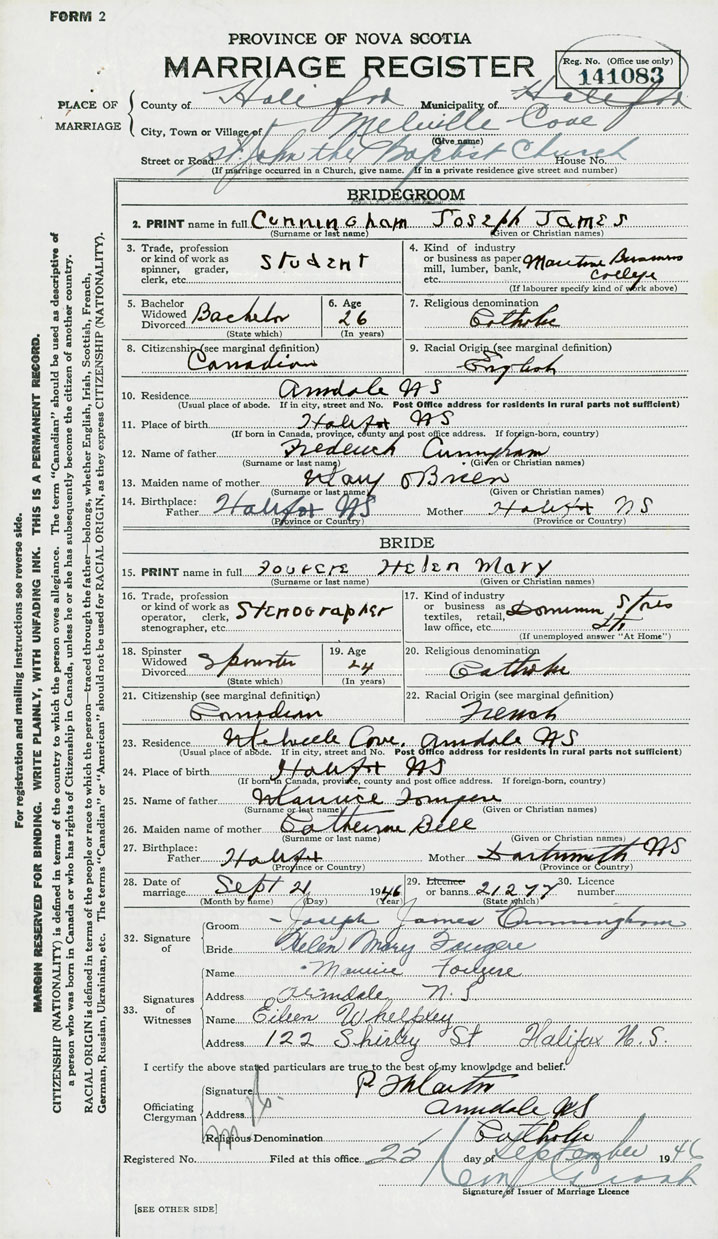 FORM 2
PROVINCE OF NOVA SCOTIA
MARRIAGE REGISTER
Reg. No. (Office use only)
141083
PLACE OF MARRIAGE
County of Halifax Municipality of Halifax
City, Town or Village of Melville Cove
(Give name)
Street or Road St. John the Baptist Church House No.
(If marriage occurred in a Church, give name. If in a private residence give street and number)
BRIDEGROOM
2. PRINT name in full Cunningham Joseph James
(Surname or last name) (Given or Christian names)
3. Trade, profession or kind of work as spinner, grader, clerk, etc. Student
4. Kind of industry or business as paper mill, lumber, bank, etc. Maritime Business College
(If labourer specify kind of work above)
5. Bachelor Widowed Divorced Bachelor
(State which)
6. Age 26
(In years)
7. Religious denomination Catholic
8. Citizenship (see marginal definition) Canadian
9. Racial Origin (see marginal definition) English
10. Residence Armdale NS
(Usual place of abode. If in city, street and No. Post Office address for residents in rural parts not sufficient)
11. Place of birth Halifax NS
(If born in Canada, province, county and post office address. If foreign-born, country)
12. Name of father Frederick Cunningham
(Surname or last name) (Given or Christian names)
13. Maiden name of mother Mary OBrien
(Surname or last name) (Given or Christian names)
14. Birthplace: Father Halifax NS Mother Halifax NS
(Province or Country) (Province or Country)
BRIDE
15. PRINT name in full Fougere Helen Mary
(Surname or last name) (Given or Christian names)
16. Trade, profession or kind of work as operator, clerk, stenographer, etc. Stenographer
17. Kind of industry or business as textiles, retail, law office, etc. Dominion Stores Ltd
(If unemployed answer "At Home")
18. Spinster Widowed Divorced Spinster
(State which)
19. Age 24
(In years)
20. Religious denomination Catholic
21. Citizenship (see marginal definition) Canadian
22. Racial Origin (see marginal definition) French
23. Residence Melville Cove, Armdale NS
(Usual place of abode. If in city, street and No. Post Office address for residents in rural parts not sufficient)
24. Place of birth Halifax NS
(If born in Canada, province, county and post office address. If foreign-born, country)
25. Name of father Maurice Fougere
(Surname or last name) (Given or Christian names)
26. Maiden name of mother Catherine Bell
(Surname or last name) (Given or Christian names)
27. Birthplace: Father Halifax Mother Dartmouth NS
(Province or Country) (Province or Country)
28. Date of marriage Sept 21 1946
(Month by name) (Day) (Year)
29. Licence or banns 21277
(State which)
30. Licence number
32. Signature of
Groom Joseph James Cunningham
Bride Helen Mary Fougere
33. Signatures of Witnesses
Name Maurice Fougere
Address Armdale N.S
Name Eileen Whelpley
Address 122 Shirley St Halifax N.S.
I certify the above stated particulars are true to the best of my knowledge and belief.
Officiating Clergyman
Signature
Address Armdale NS
Religious Denomination Catholic
Registered No. Filed at this office 25 day of September 1946
Signature of Issuer of Marriage Licence
[SEE OTHER SIDE]
For registration and mailing instructions see reverse side.
MARGIN RESERVED FOR BINDING. WRITE PLAINLY, WITH UNFADING INK. THIS IS A PERMANENT RECORD.
CITIZENSHIP (NATIONALITY) is defined in terms of the country to which the person owes allegiance. The term "Canadian" should be used as descriptive of
a person who was born in Canada or who has rights of Citizenship in Canada, unless he or she has subsequently become the citizen of another country.
RACIAL ORIGIN is defined in terms of the people or race to which the person—traced through the father—belongs, whether English, Irish, Scottish, French,
German, Russian, Ukrainian, etc. The terms "Canadian" or "American" should not be used for RACIAL ORIGIN, as they express CITIZENSHIP (NATIONALITY).